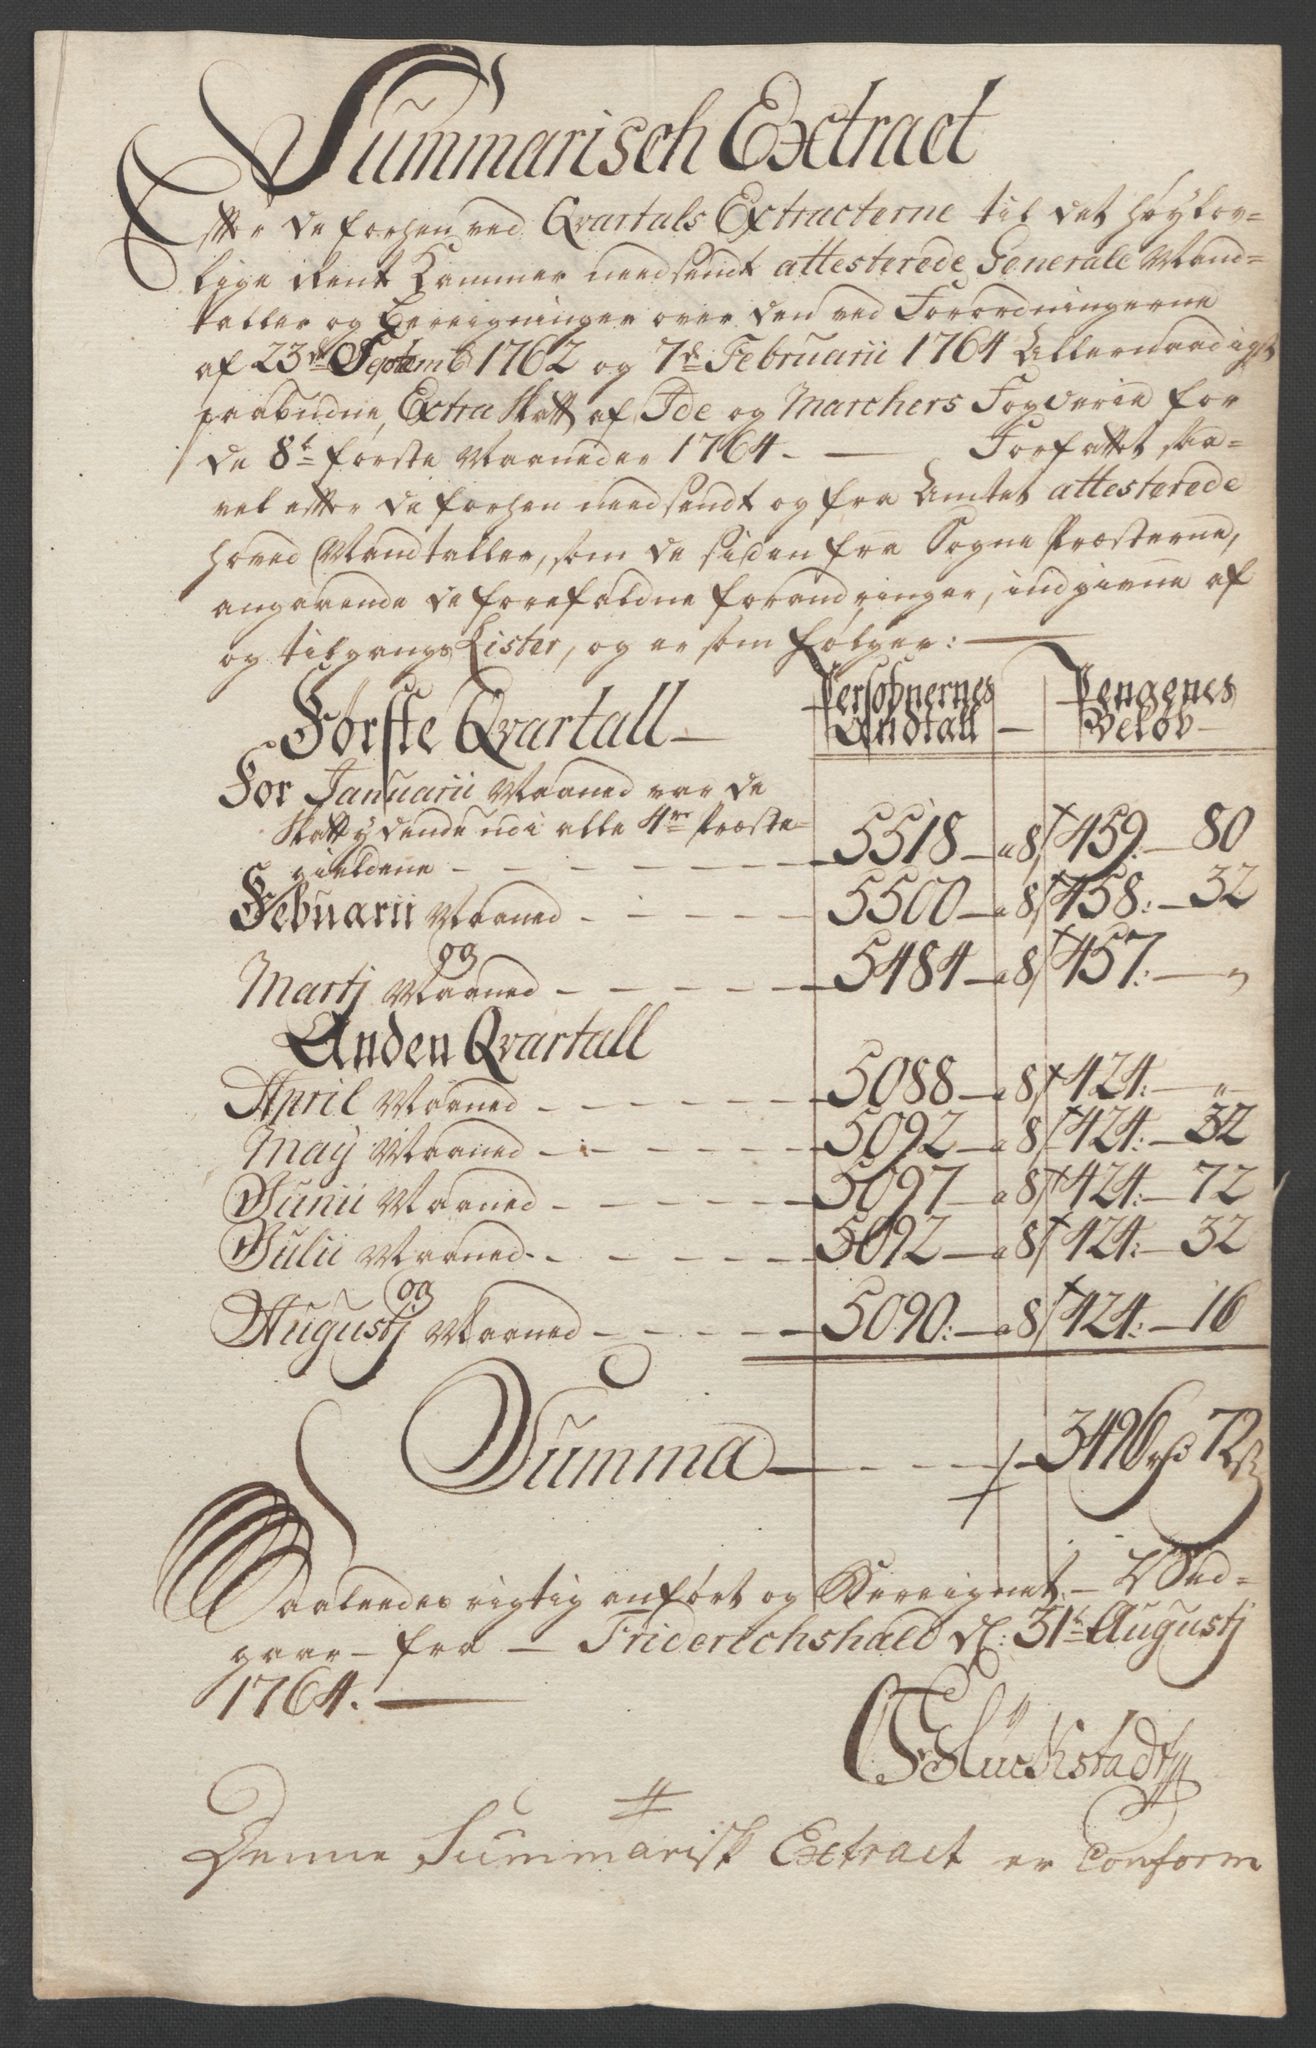 Summarisch Extract
Efter de forhen ved Qvartals Extracterne til det høylov-
lige Rent Kammer needsendt attesterede Generale Mand-
taller og Bereigninger over den ved Forordningerne
af 23de Septemb 1762 og 7de Februarii 1764 Allernaadigst
paabudne, Extra Skatt af Ide og Marchers Fogderie for
de 8te første Maaneder 1764. — Forfattet saa-
vel efter de forhen needsendt og fra Amtet attesterede
hoved Mandtaller, som de siden fra Sogne Præsterne,
angaaende de forefaldne forandringer, indgivne af
og tilgangs Lister, og er som følger: —
Første Qvartall — Persohnernes Andtall — Pengenes Beløb
For Januarii Maaned var de
Skattydende udi alle 4re Præste-
gieldene - - - - 5518 — a 8 s 459: — 80
Februarii Maaned - - - - 5500 — a 8 s 458: — 32
og
Martj Maaned - - - - 5484 — a 8 s 457: — "
Anden Qvartall
April Maaned - - - - 5088 — a 8 s 424: — "
May Maaned - - - - 5092 — a 8 s 424: — 32
Junii Maaned - - - - 5097 — a 8 s 424: — 72
Julii Maaned - - - - 5092 — a 8 s 424: — 32
og
Augustj Maaned - - - - 5090: — a 8 s 424: — 16
Summa — - - - 3496 rd 72 s
Saaledes rigtig anført og Bereignet: — Ved-
gaar — fra — Friderichshald d: 31te Augustj
1764. —
Glückstadt
Denne Summarisk Extract er Conform